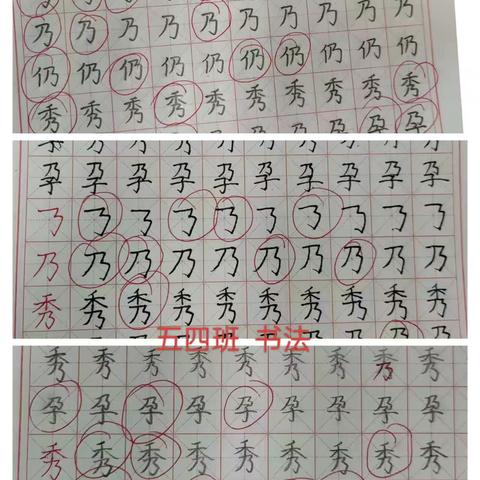 乃乃乃乃乃乃乃乃乃乃
仍仍仍仍仍仍仍仍仍仍
秀秀秀秀秀秀秀秀秀秀
孕孕
孕孕孕孕孕孕孕孕孕孕
乃乃乃乃乃乃乃乃乃乃
秀秀秀秀秀秀秀秀秀秀
五四班 书法
秀秀秀秀秀秀秀秀秀
乃
孕孕孕孕孕孕孕孕孕
秀秀秀秀秀秀秀秀秀